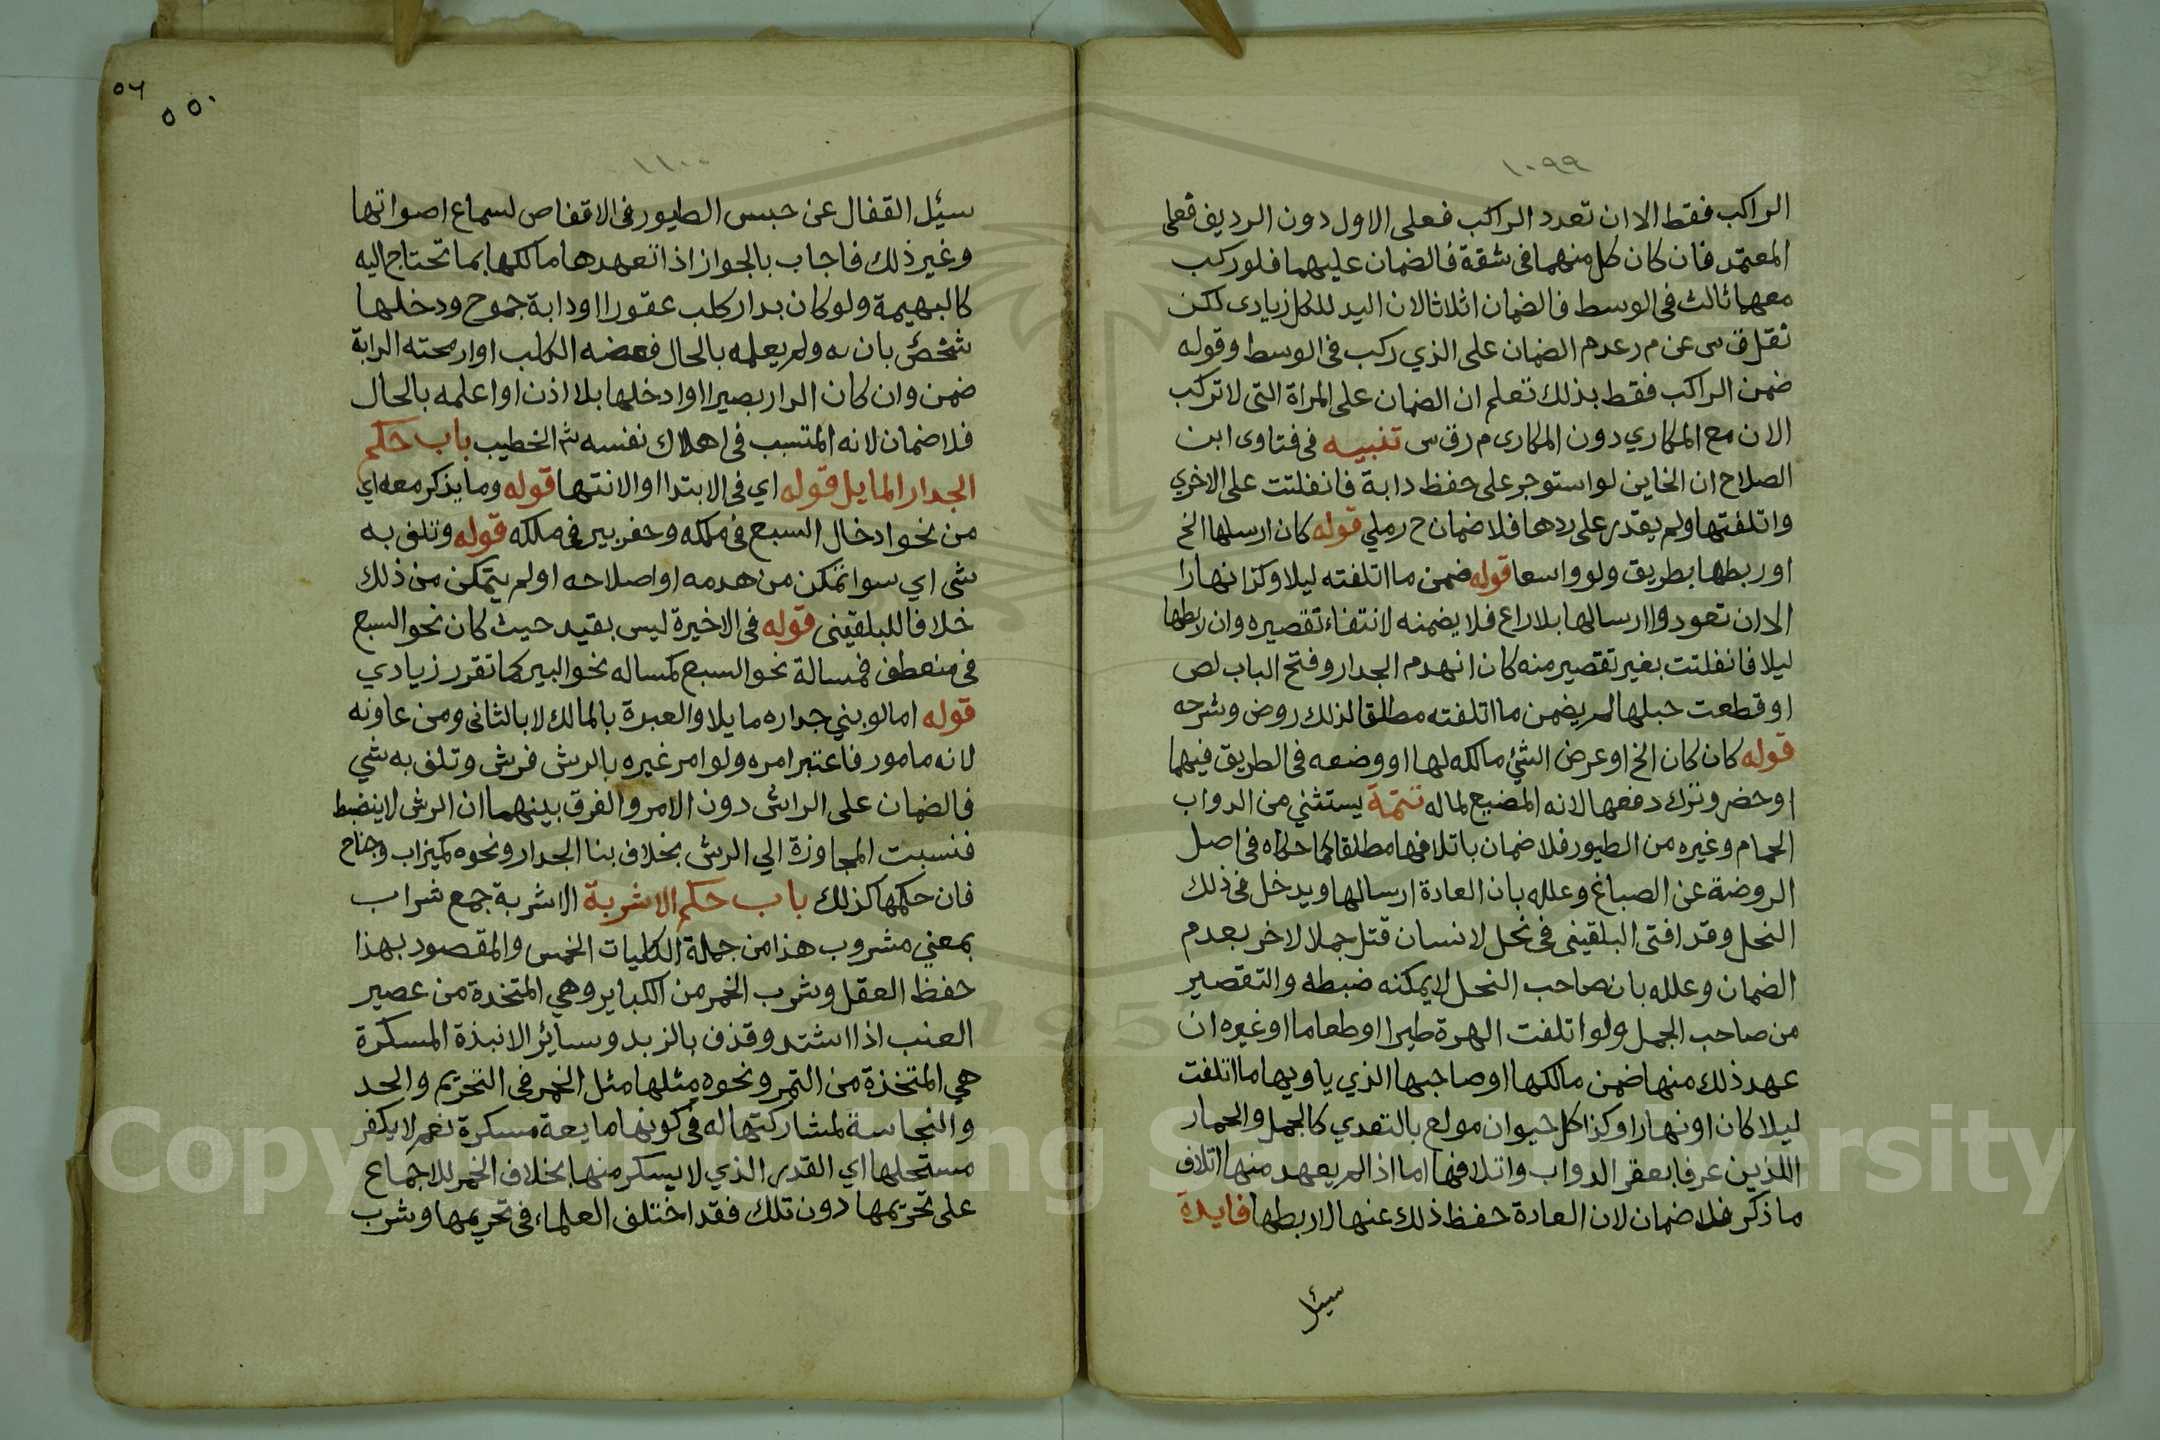 ١٠٩٩
الراكب فقط الا ان تعدد الراكب فعلى الاول دون الرديف فعلى
المعتمد فان كان كل منهما في شقة فالضمان عليهما فلو ركب
معهما ثالث في الوسط فالضمان اثلاثا لان اليد للكل زيادى لكن
نقل ق س عن م ر عدم الضمان على الذي ركب في الوسط وقوله
ضمن الراكب فقط بذلك تعلم ان الضمان على المراة التى لا تركب
الان مع المكاري دون المكارى م ر ق س تنبيه في فتاوى ابن
الصلاح ان الخاين لو استوجر على حفظ دابة فانفلتت على الاخري
واتلفتها ولم يقدر على ردها فلا ضمان ح رملي قوله كان ارسلها الخ
او ربطها بطريق ولو واسعا قوله ضمن ما اتلفته ليلا وكذا نهارا
الا ان تعودوا ارسالها بلا راع فلا يضمنه لانتفاء تقصيره وان ربطها
ليلا فانفلتت بغير تقصير منه كان انهدم الجدار وفتح الباب لص
او قطعت حبلها لم يضمن ما اتلفته مطلقا لذلك روض وشرحه
قوله كان كان الخ او عرض الشئ مالكه لها او وضعه في الطريق فيهما
او حضر وترك دفعها لانه المضيع لماله تتمة يستثني من الدواب
الحمام وغيره من الطيور فلا ضمان باتلافها مطلقا كما حكاه في اصل
الروضة عن الصباغ وعلله بان العادة ارسالها ويدخل في ذلك
النحل وقد افتى البلقينى في نحل لانسان قتل جملا لاخر بعدم
الضمان وعلله بان صاحب النحل لا يمكنه ضبطه والتقصير
من صاحب الجمل ولو اتلفت الهرة طيرا او طعاما او غيره ان
عهد ذلك منها ضمن مالكها او صاحبها الذي ياويها ما اتلفت
ليلا كان او نهارا وكذا كل حيوان مولع بالتعدي كالجمل والحمار
اللذين عرفا بعقر الدواب واتلافها اما اذا لم يعهد منها اتلاف
ما ذكر فلا ضمان لان العادة حفظ ذلك عنها لا ربطها فايدة
سيئل
٥٦
٥٥٠
١١٠٠
سيئل القفال عن حبس الطيور في الاقفاص لسماع اصواتها
وغير ذلك فاجاب بالجواز اذا تعهدها مالكها بما تحتاج اليه
كالبهيمة ولو كان بدار كلب عقورا او دابة جموح ودخلها
شخص باذنه ولم يعلمه بالحال فعضه الكلب او ارمحته الدابة
ضمن وان كان الدار بصيرا او ادخلها بلا اذن او اعلمه بالحال
فلا ضمان لانه المتسبب في اهلاك نفسه ش الخطيب باب حكم
الجدار المايل قوله اي في الابتدا او الانتها قوله وما يذكر معه اي
من نحو ادخال السبع في ملكه وحفر بير في ملكه قوله وتلف به
شى اي سوا تمكن من هدمه او اصلاحه او لم يتمكن من ذلك
خلافا للبلقينى قوله في الاخيرة ليس بقيد حيث كان نحو السبع
في منعطف فمسالة نحو السبع كمساله نحو البير كما تقرر زيادي
قوله اما لو بني جداره مايلا والعبرة بالمالك لا بالثانى ومن عاونه
لانه مامور فاعتبر امره ولو امر غيره بالرش فرش وتلف به شي
فالضمان على الراش دون الامر والفرق بينهما ان الرش لا ينضبط
فنسبت المجاوزة الي الرش بخلاف بنا الجدار ونحوه كميزاب وجناح
فان حكمها كذلك باب حكم الاشربة الاشربة جمع شراب
بمعني مشروب هذا من جملة الكليات الخمس والمقصود بهذا
حفظ العقل وشرب الخمر من الكباير وهي المتخدة من عصير
العنب اذا اشتد وقذف بالزبد وسائر الانبذة المسكرة
هي المتخذة من التمر ونحوه مثلها مثل الخمر في التحريم والحد
والنجاسة لمشاركتها له في كونها مايعة مسكرة نعم لا يكفر
مستحلها اي القدر الذي لا يسكر منها بخلاف الخمر للاجماع
على تحريمها دون تلك فقد اختلف العلماء في تحريمها وشرب
Copyright © King Saud University
1957